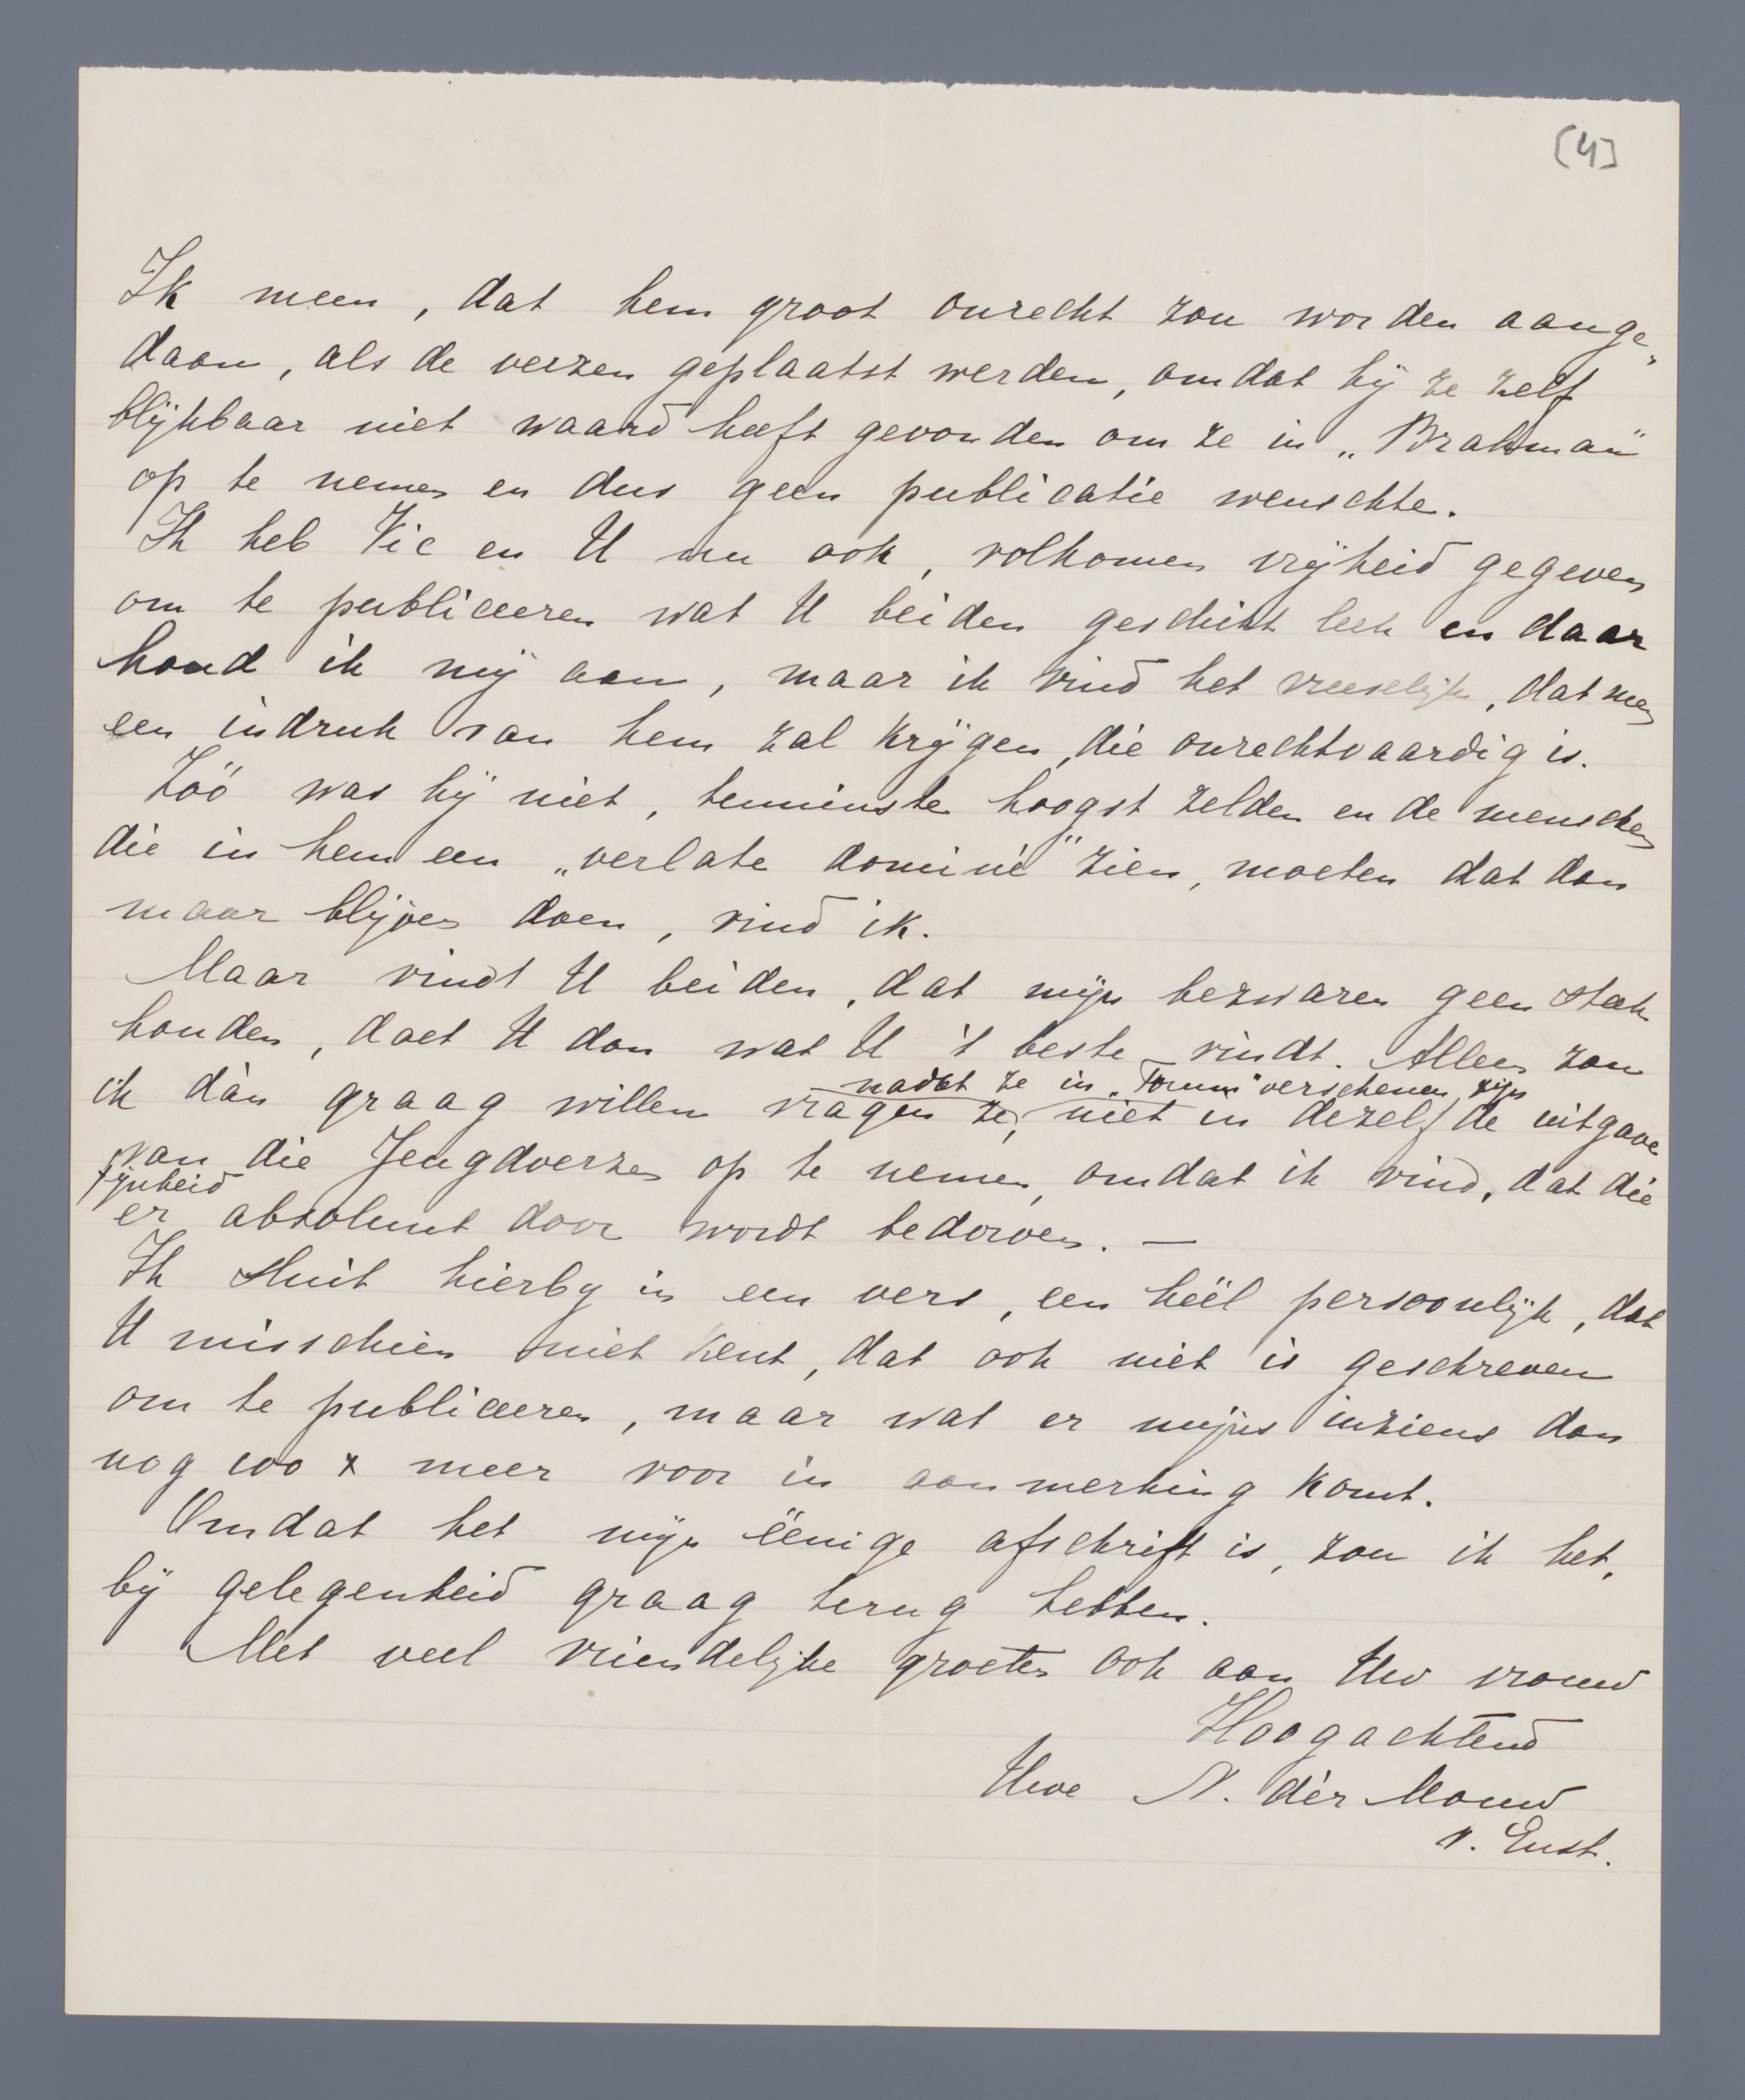 [4]
Ik meen, dat hem groot onrecht zou worden aange-
daan, als de verzen geplaatst werden, omdat hij ze zelf
blijkbaar niet waard heeft gevonden om ze in „Brahman"
op te nemen en dus geen publicatie wenschte.
Ik heb Vic en U nu ook, volkomen vrijheid gegeven
om te publiceeren wat U beiden geschikt leek en daar
houd ik mij aan, maar ik vind het vreeselijk, dat men
een indruk van hem zal krijgen, die onrechtvaardig is.
Zóó was hij niet, tenminste hoogst zelden en de menschen
die in hem een „verlate dominé" zien, moeten dat dan
maar blijven doen, vind ik.
Maar vindt U beiden, dat mijn bezwaren geen steek
houden, doet U dan wat U 't beste vindt. Alleen zou
nadat ze in „Forum" verschenen zijn
ik dàn graag willen vragen ze, niet in dezelfde uitgave
van die Jeugdverzen op te nemen, omdat ik vind, dat die
fijnheid
er absoluut door wordt bedorven. —
Ik sluit hierbij in een vers, een héél persoonlijk, dat
U misschien niet kent, dat ook niet is geschreven
om te publiceeren, maar wat er mijns inziens dan
nog 100 x meer voor in aanmerking komt.
Omdat het mijn éénige afschrift is, zou ik het,
bij gelegenheid graag terug hebben.
Met veel vriendelijke groeten ook aan Uw vrouw
Hoogachtend
Uwe N. dèr Mouw
v. Enst.